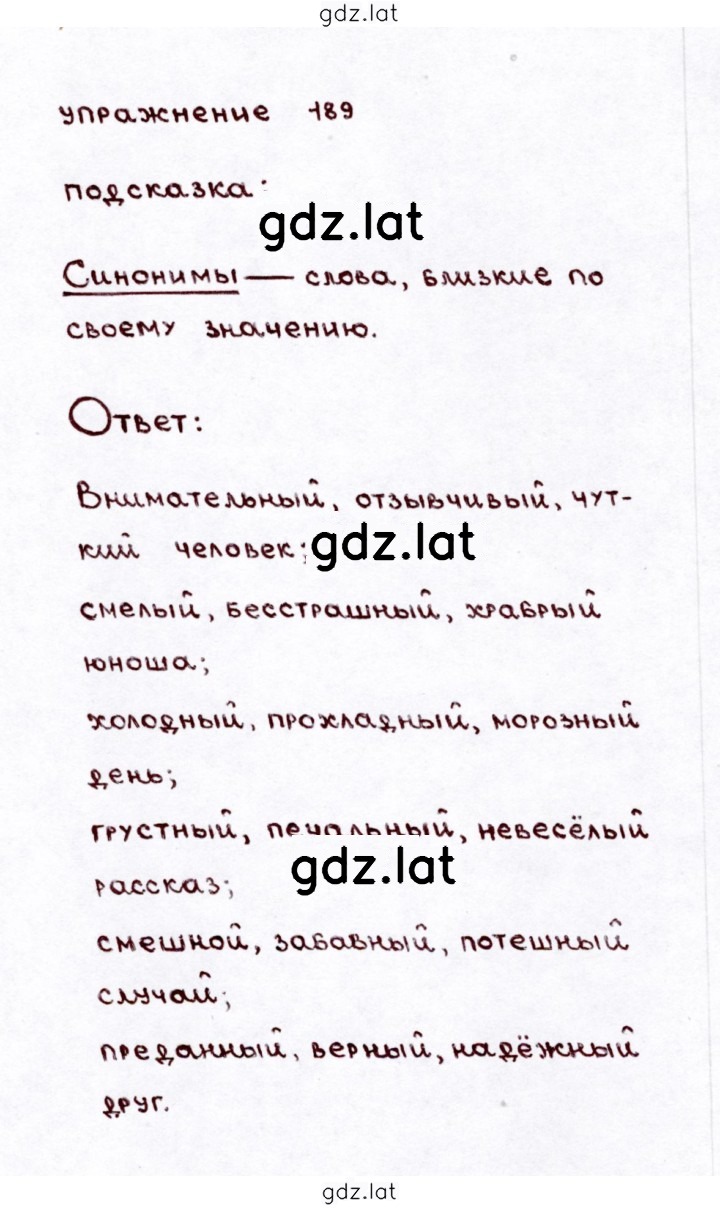 gdz.lat
упражнение 189
подсказка:
gdz.lat
Синонимы — слова, близкие по
своему значению.
Ответ:
Внимательный, отзывчивый, чут-
кий человек; gdz.lat
смелый, бесстрашный, храбрый
юноша;
холодный, прохладный, морозный
день;
грустный, печальный, невесёлый
gdz.lat
рассказ;
смешной, забавный, потешный
случай;
преданный, верный, надёжный
друг.
gdz.lat